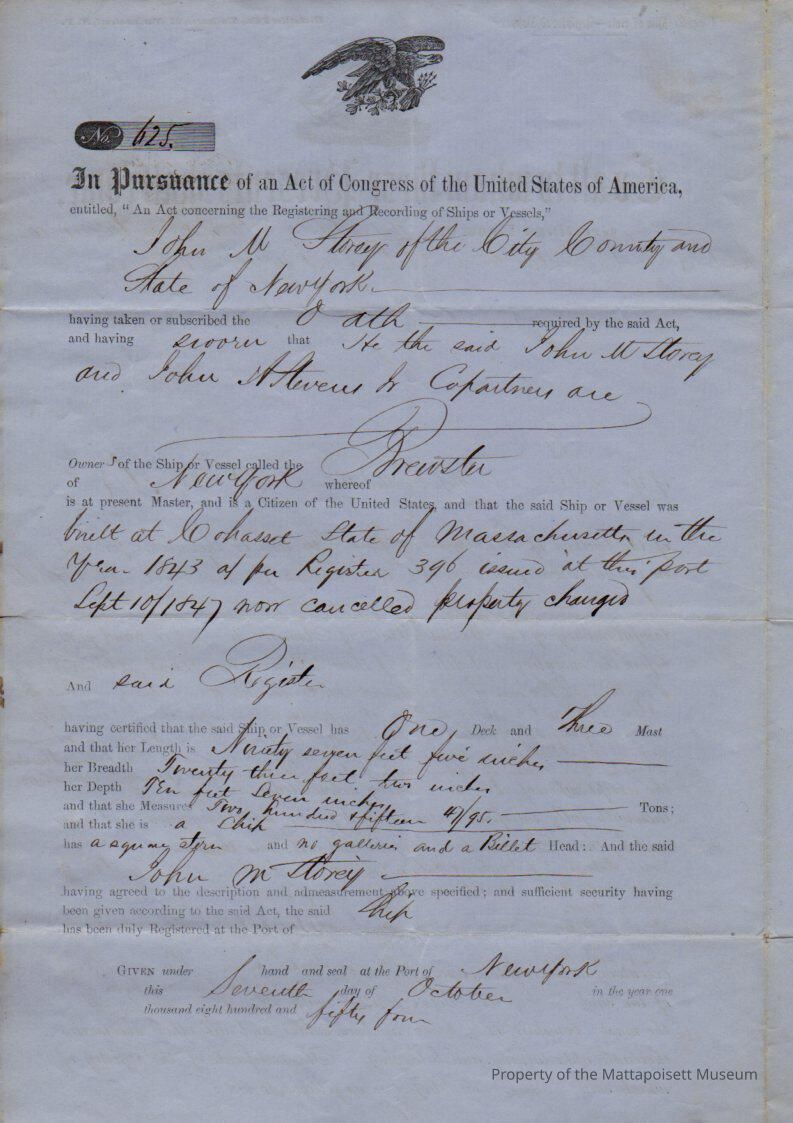 No. 625.
In Pursuance of an Act of Congress of the United States of America,
entitled, "An Act concerning the Registering and Recording of Ships or Vessels,"
John M Storey of the City County and
State of New York
having taken or subscribed the Oath required by the said Act,
and having sworn that He the said John M Storey
and John A Stevens Jr Copartners are
Owners of the Ship or Vessel called the Brewster
of New York whereof
is at present Master, and is a Citizen of the United States, and that the said Ship or Vessel was
built at Cohasset State of Massachusetts in the
Year 1843 as per Register 396 issued at this port
Sept 10/1847 now cancelled property changed
And said Register
having certified that the said Ship or Vessel has One Deck and Three Mast
and that her Length is Ninety seven feet five inches
her Breadth Twenty three feet two inches
her Depth Ten feet Seven inches
and that she Measures Two hundred & fifteen 47/95. Tons;
and that she is a Ship
has a square stern and no galleries and a Billet Head: And the said
John M Storey
having agreed to the description and admeasurement above specified; and sufficient security having
been given according to the said Act, the said Ship
has been duly Registered at the Port of
GIVEN under hand and seal at the Port of New York
this Seventh day of October in the year one
thousand eight hundred and fifty four
Property of the Mattapoisett Museum